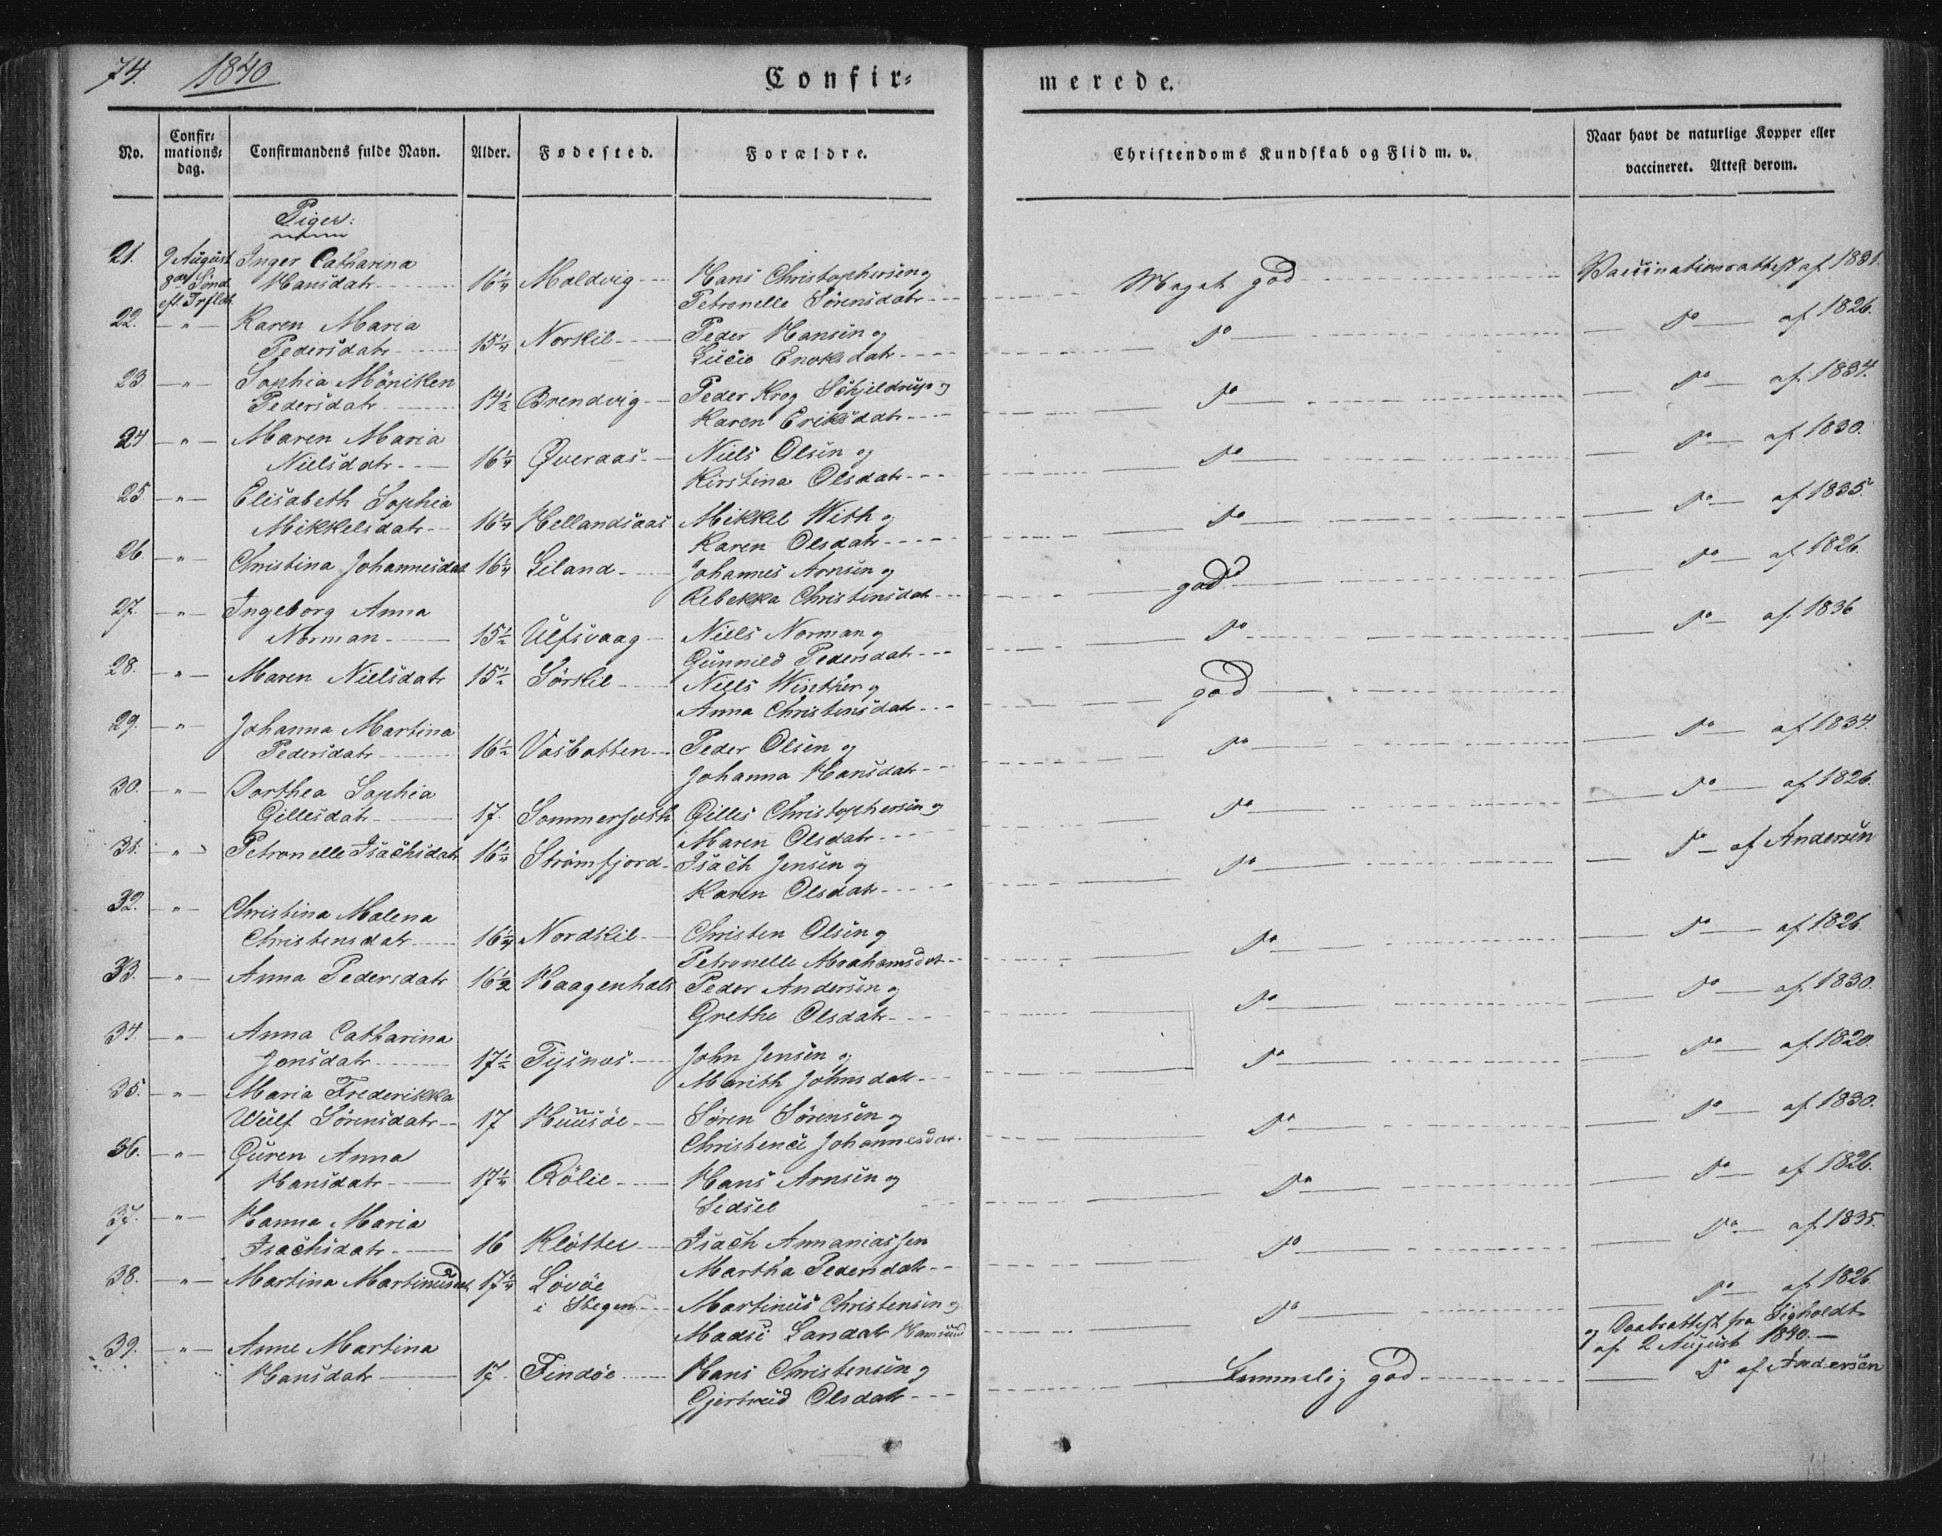 74. 1840
Confir= merede.
No. Confir=mations=dag. Confirmandens fulde Navn. Alder. Fødested. Forældre. Christendoms Kundskab og Flid m. v. Naar havt de naturlige Kopper eller vaccineret. Attest derom.
Piger:
21. 9 August Inger Catharina
8de Sønd. Hansdatr 16 1/4 Maldvig Hans Christophersen og Meget god Vaccinationsattest af 1831.
eft. Trflđ. Petronelle Sørensdatr
22. " Karen Maria
Pedersdatr 15 1/4 Norskil Peder Hansen og do do af 1826.
Lucie Enoksdatr
23. " Sophia Mönikken
Pedersdatr 14 1/2 Brendvig Peder Krog Schjeldrup og do do af 1834.
Karen Eriksdatr
24 " Maren Maria
Nielsdatr 16 1/4 Øveraas Niels Olsen og do do af 1830.
Kirstina Olsdatr
25 " Elisabeth Sophia
Mikkelsdatr 16 1/4 Hellandsaas Mikkel With og do do af 1835.
Karen Olsdatr
26 " Christina Johannesdat 16 1/4 Leland Johannes Arnsen og god do af 1826.
Rebekka Christensdat
27. " Ingeborg Anna
Norman 15 1/2 Ulfsvaag Niels Norman og do do af 1836
Gunnild Pedersdatr
28. " Maren Nielsdatr 15 1/2 Sørskil Niels Winther og god
Anna Christensdatr
29. " Johanna Martina
Pedersdatr 16 1/2 Vasbotten Peder Olsen og do do af 1834.
Johanna Hansdatr
30. " Dorthea Sophia
Gillesdatr 17. Sommerseth Gilles Christophersen og do do af 1826.
Maren Olsdatr
31. " Petronelle Isachsdatr 16 1/2 Strømfjord Isach Jensen og do do af Andersen
Karen Olsdatr
32. " Christina Malena
Christensdatr 16 1/4 Nordskil Christen Olsen og do do af 1826.
Petronelle Abrahamsdat
33. " Anna Pedersdatr 16 1/2 Haagenhals Peder Andersen og do do af 1830.
Grethe Olsdatr
34. " Anna Catharina
Jonsdatr 17 1/2 Tysnes John Jensen og do do af 1820.
Marith Johnsdatr
35. " Maria Frederikka
Wulf Sørensdatr 17 Huusöe Søren Sørensen og do do af 1830.
Christence Johannesdatr
36. " Guren Anna
Hansdatr 17 1/4 Rölie Hans Arnsen og do do af 1826.
Sidsel
37. " Hanna Maria
Isachsdatr 16 Kløtten Isach Annaniassen do do af 1835.
Martha Pedersdatr
38. " Martina Martinusdat 17 1/4 Løvöe
i Stegen Martinus Christensen og do do af 1826.
Madse Larsdatr Hamsund og Daabsattest fra Sigholdt
af 2 August 1840.
39. " Anne Martina
Hansdatr 17. Findöe Hans Christensen og Temmelig god do af Andersen
Gjertrud Olsdatr